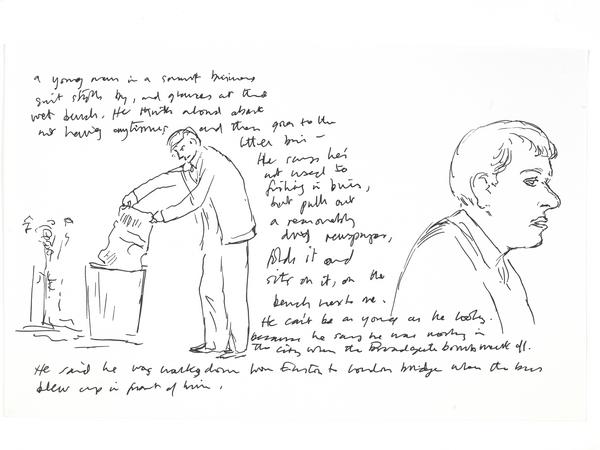 a young man in a smart business
suit stops by, and glances at the
wet bench. He thinks aloud about
not having and then goes to the
litter bin –
He says he's
not used to
fishing in bins,
but pulls out
a reasonably
dry newspaper,
folds it and
sits on it, on the
bench next to me.
He can't be as young as he looks.
because he says he was working in
the city when the Broadgate went off.
He said he was walking down from Euston to London bridge when the bus
blew up in front of him.